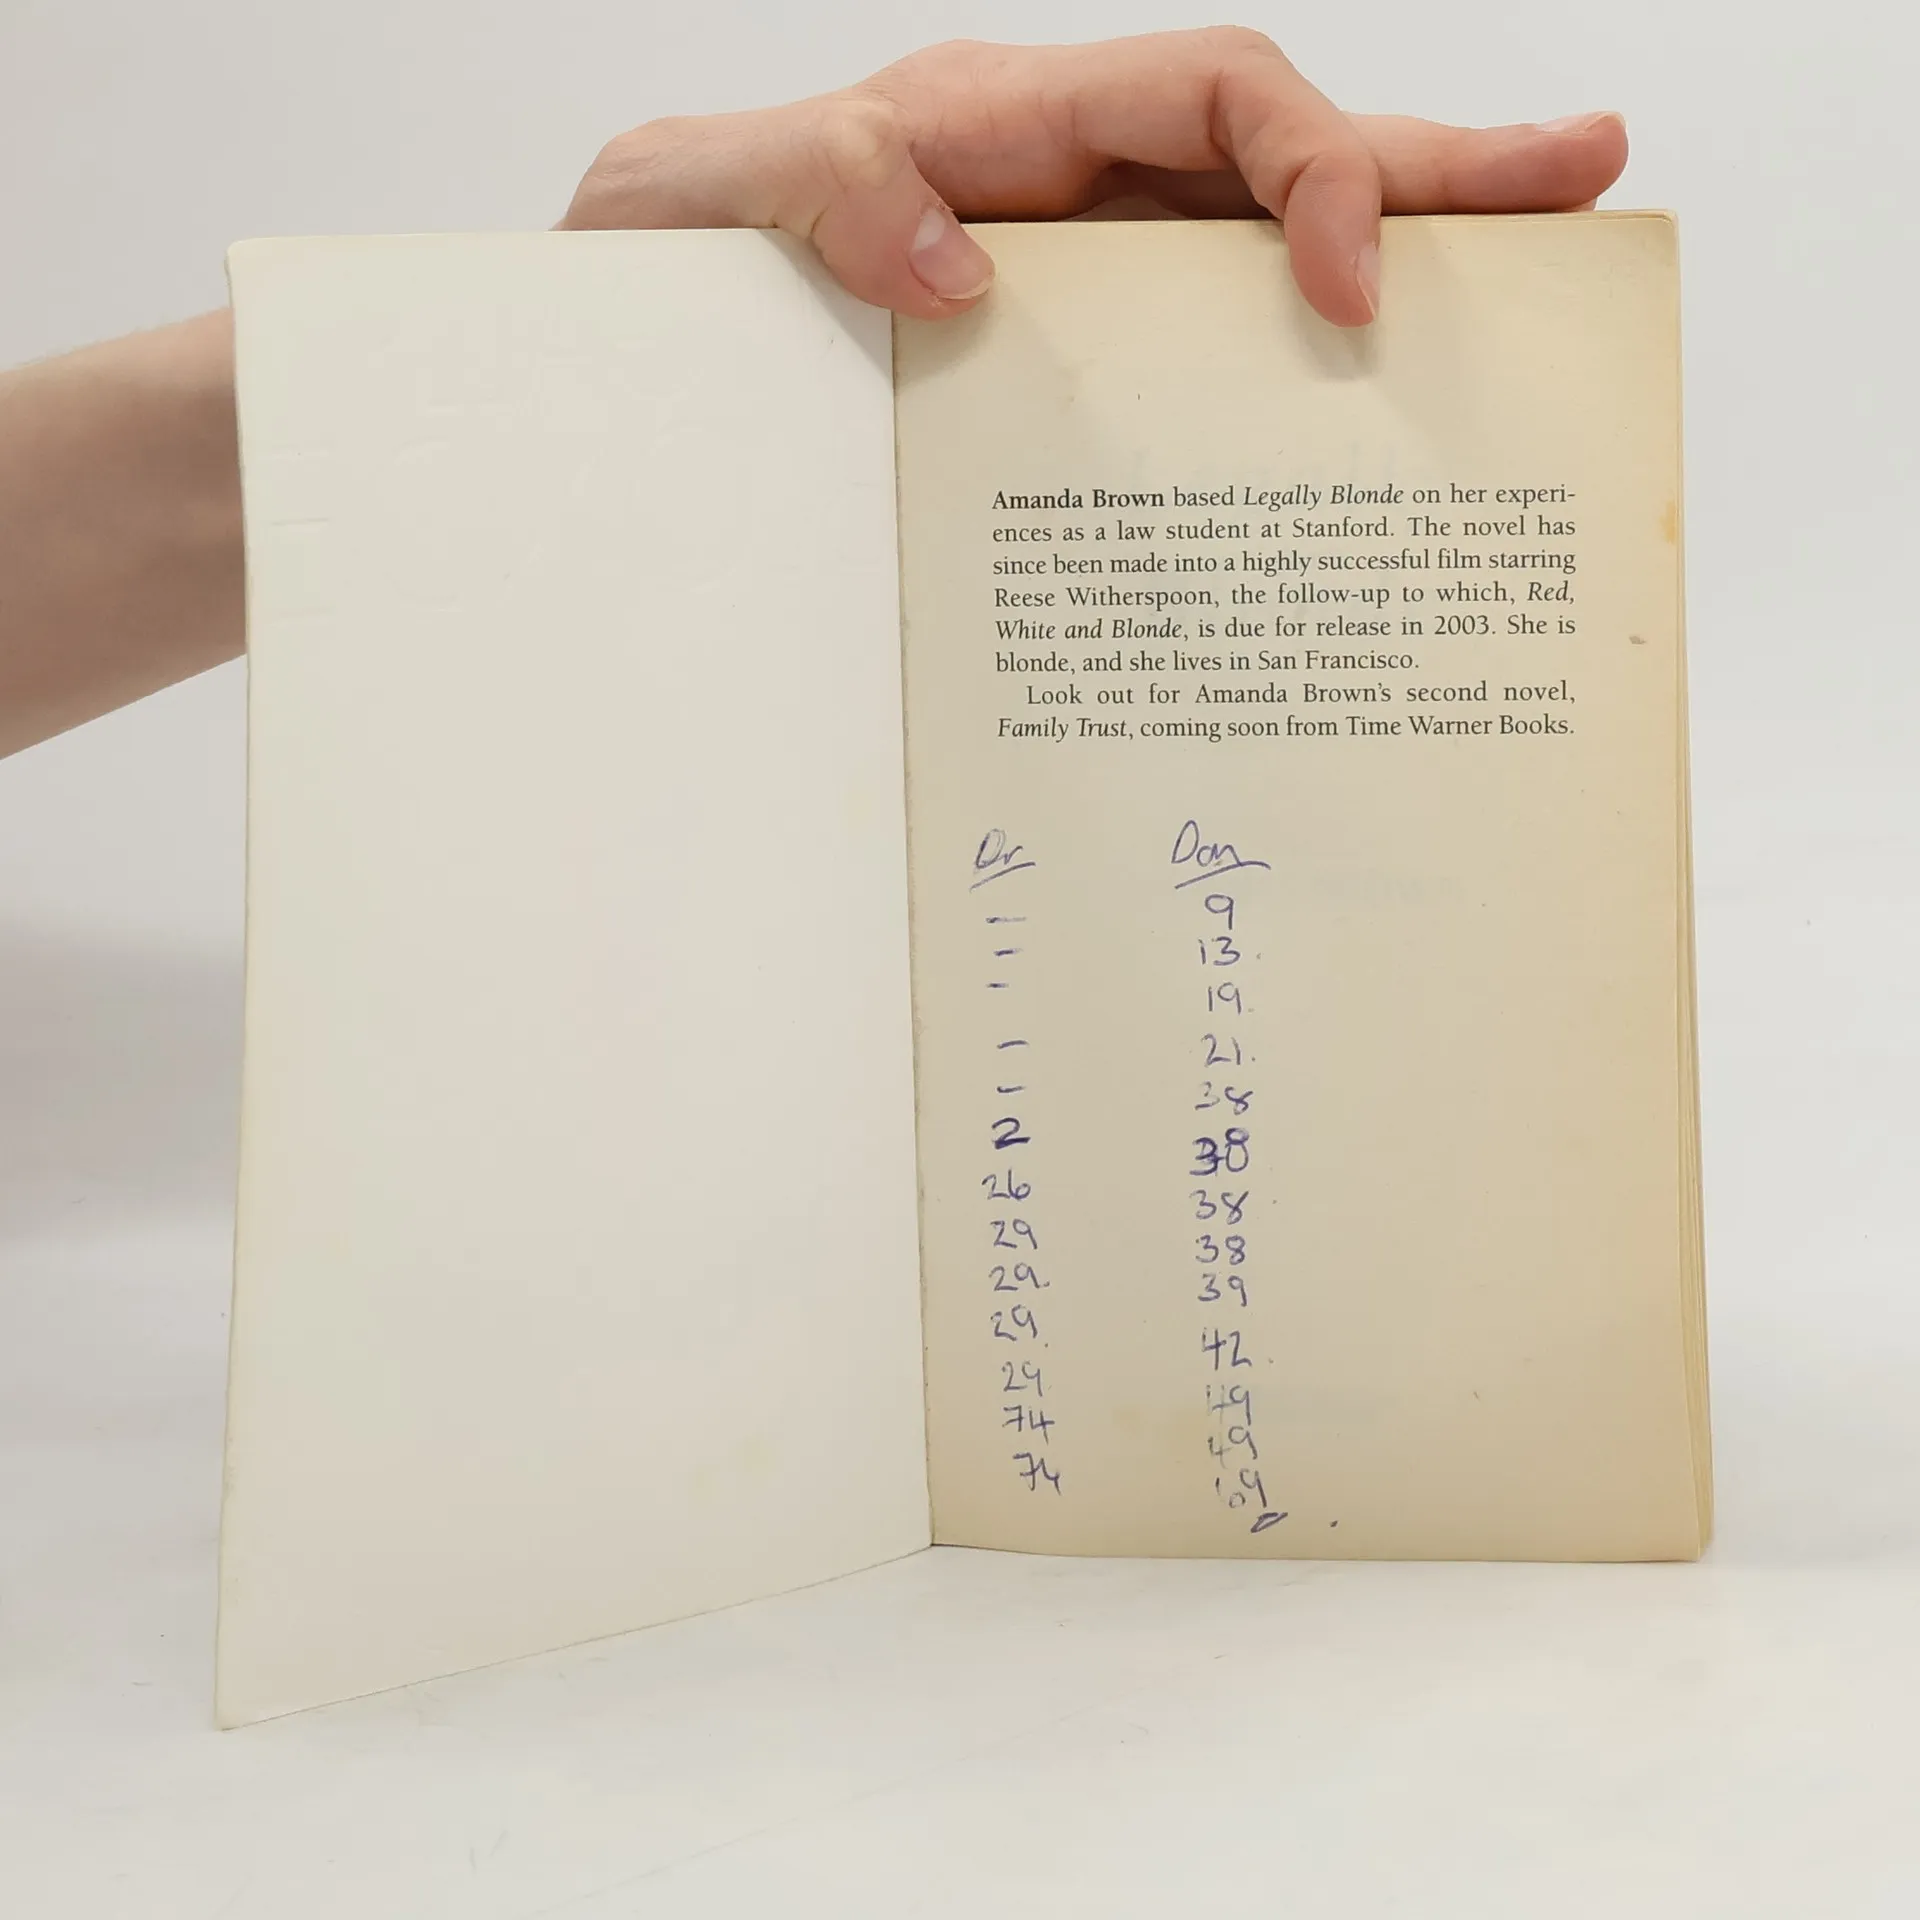 Amanda Brown based Legally Blonde on her experi-
ences as a law student at Stanford. The novel has
since been made into a highly successful film starring
Reese Witherspoon, the follow-up to which, Red,
White and Blonde, is due for release in 2003. She is
blonde, and she lives in San Francisco.
Look out for Amanda Brown's second novel,
Family Trust, coming soon from Time Warner Books.
Dr Dan
– 9
– 13.
– 19.
– 21.
– 38
2 38
26 38
29 38
29. 39
29. 42.
29 49
74 49
74 69